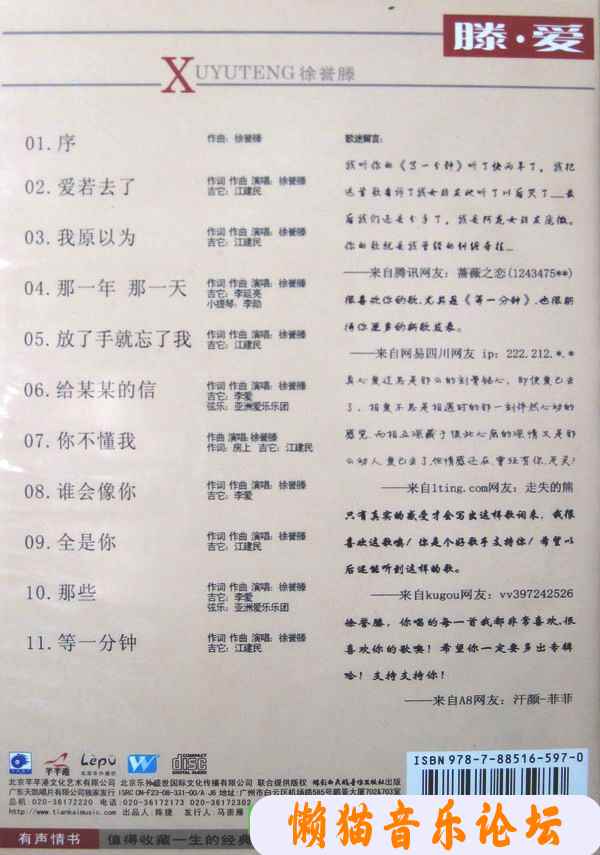 滕·爱
XUYUTENG徐誉滕
01.序
作曲：徐誉滕
02.爱若去了
作词 作曲 演唱：徐誉滕
吉它：江建民
03.我原以为
作词 作曲 演唱：徐誉滕
吉它：江建民
04.那一年 那一天
作词 作曲 演唱：徐誉滕
吉它：李延亮
小提琴：李勋
05.放了手就忘了我
作词 作曲 演唱：徐誉滕
吉它：江建民
06.给某某的信
作词 作曲 演唱：徐誉滕
吉它：李爱
弦乐：亚洲爱乐乐团
07.你不懂我
作曲 演唱：徐誉滕
作词：房上 吉它：江建民
08.谁会像你
作词 作曲 演唱：徐誉滕
吉它：李爱
09.全是你
作词 作曲 演唱：徐誉滕
吉它：江建民
10.那些
作词 作曲 演唱：徐誉滕
吉它：李爱
弦乐：亚洲爱乐乐团
11.等一分钟
作词 作曲 演唱：徐誉滕
吉它：江建民
歌迷留言：
我听你的《等一分钟》听了快两年了，我把
这首歌
——来自腾讯网友：蔷薇之恋(1243475**)
很喜欢你的歌，尤其是《等一分钟》，也很期
待你更多的新歌发表。
——来自网易四川网友 ip：222.212.*.*
真心爱过总是那么的刻骨铭心，即使爱已去
了，相爱不总是相遇时的那一刻怦然心动的
感觉，而相互深藏于彼此心底的深情又是那
么动人，爱已去了，但情感还在，曾经有你，足矣！
——来自1ting.com网友：走失的熊
只有真实的感受才会写出这样歌词来，我很
喜欢这歌噢！你是个好歌手支持你！希望以
后还能听到这样的歌。
——来自kugou网友：vv397242526
徐誉滕，你唱的每一首我都非常喜欢，很
喜欢你的歌噢！希望你一定要多出专辑
哈！支持支持你！
——来自A8网友：汗颜-菲菲
芊芊港
Lepu
COMPACT disc DIGITAL AUDIO
北京芊芊港文化艺术有限公司 北京乐外盛世国际文化传播有限公司 联合提供版权
广东天凯唱片有限公司独家发行 ISRC CN-F23-08-331-00/A·J6 地址：广州市白云区机场路585号鹏景大厦702&703室
品拍：020-36172220 传真：020-36172173 020-36172302
www.tiankaimusic.com 出版人：陈捷 发行人：马崇雁
ISBN 978-7-88516-597-0
有声情书
值得收藏一生的经典
懒猫音乐论坛